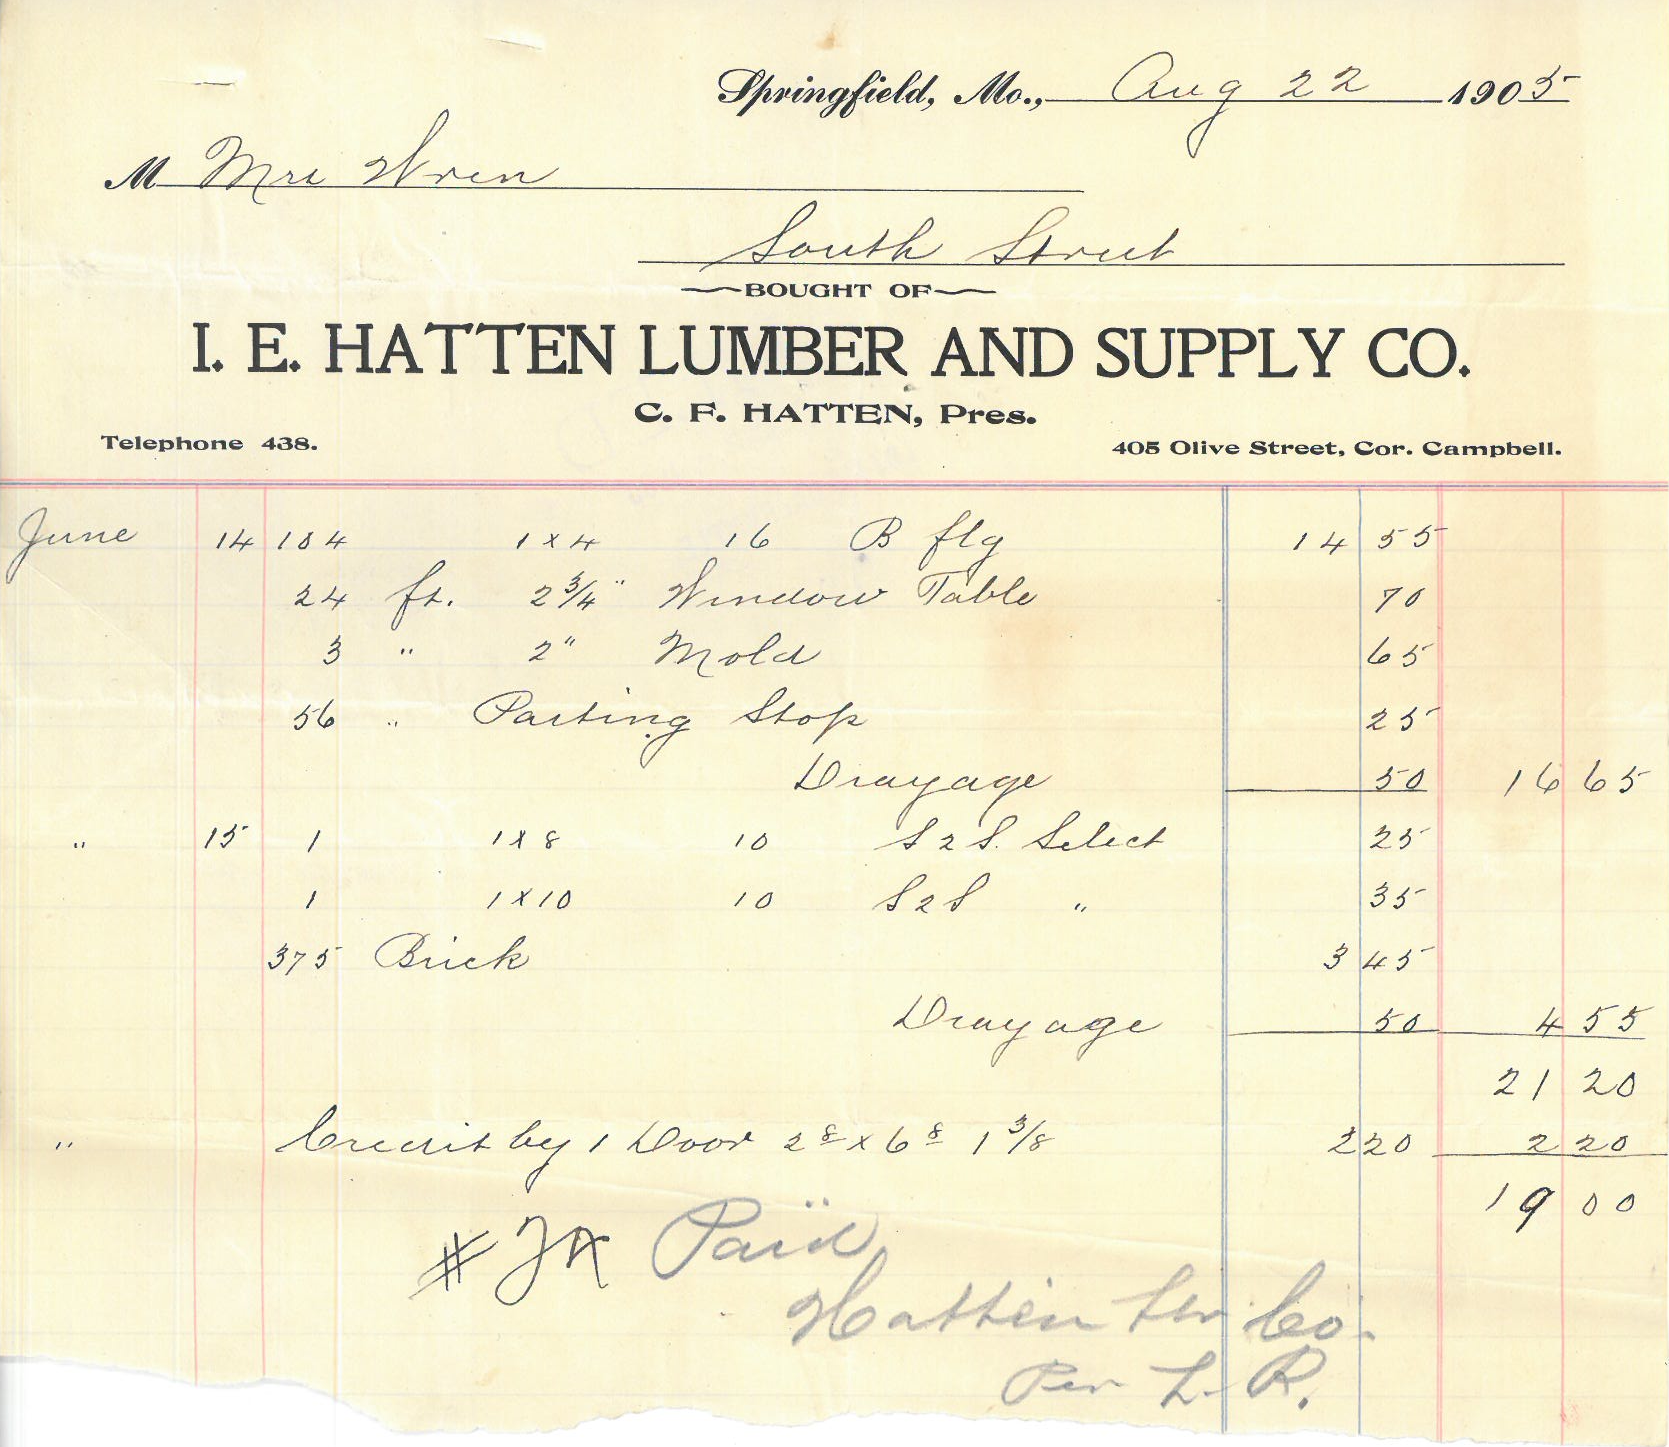 Springfield, Mo., Aug 22 1905
M Mrs Wren
South Street
BOUGHT OF
I. E. HATTEN LUMBER AND SUPPLY CO.
C. F. HATTEN, Pres.
Telephone 438. 405 Olive Street, Cor. Campbell.
June 14 104 1x4 16 B flg 14 55
24 ft. 2 3/4" Window Table 70
3 " 2" Mold 65
56 " Parting Stop 25
Drayage 50 16 65
" 15 1 1x8 10 S2S. Select 25
1 1x10 10 S2S " 35
375 Brick 3 45
Drayage 50 4 55
21 20
" Credit by 1 Door 2 8 x 6 8 1 3/8 2 20 2 20
19 00
Paid
Hatten Lbr Co.
Per L. R.